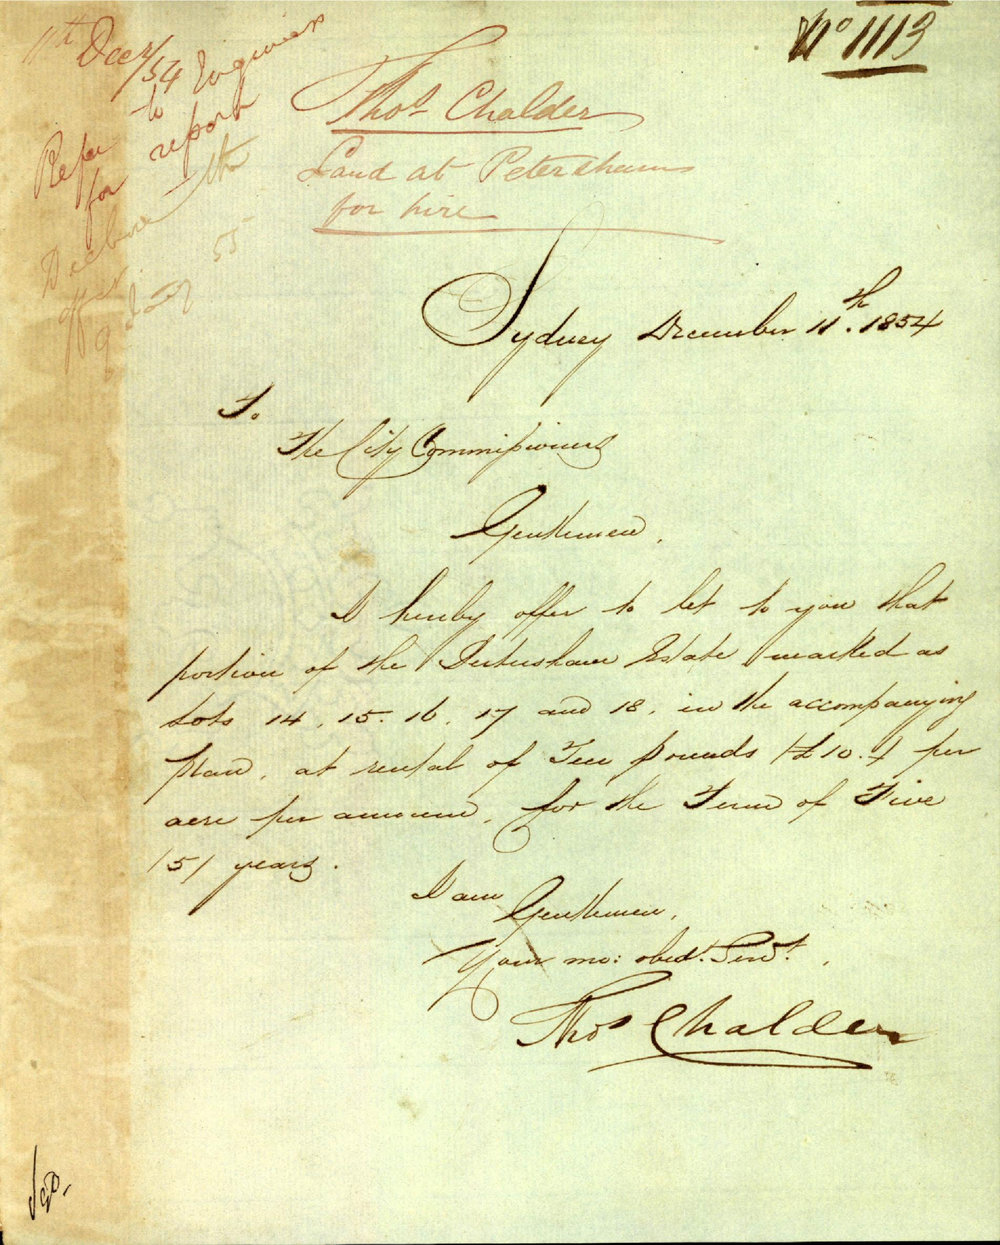 No 1113
11th Decr/54
Refer to Engineer
for report
Decline the
offer
9 55
Thos Chalder
Land at Petersham
for hire
Sydney December 11th. 1854
To
The City Commissioners
Gentlemen,
I hereby offer to let to you that
portion of the Petersham Estate marked as
Lots 14. 15. 16. 17 and 18. in the accompanying
plan, at rental of Ten pounds (£10.) per
acre per annum, for the Term of Five
(5) years.
I am
Gentlemen,
Your mo: obedt. Servt.
Thos Chalder